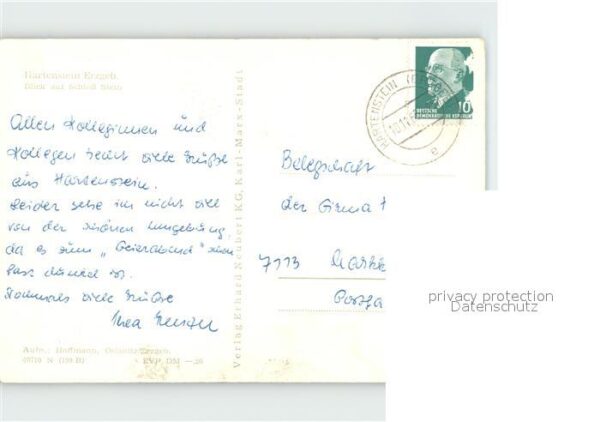 Hartenstein Erzgeb.
Blick auf Schloß Stein
Allen Kolleginnen und
Kollegen sendet viele Grüße
aus Hartenstein.
Leider sehe ich nicht viel
von der schönen Umgebung,
da es zum „Feierabend" schon
fast dunkel ist.
Nochmals viele Grüße
Aufn.: Hoffmann, Oelsnitz/Erzgeb.
EVP DM —.20
Verlag Erhard Neubert KG, Karl-Marx-Stadt
HARTENSTEIN
10.11.
e
10
DEUTSCHE
DEMOKRATISCHE REPUBLIK
Belegschaft
der Firma
7113
privacy protection
Datenschutz